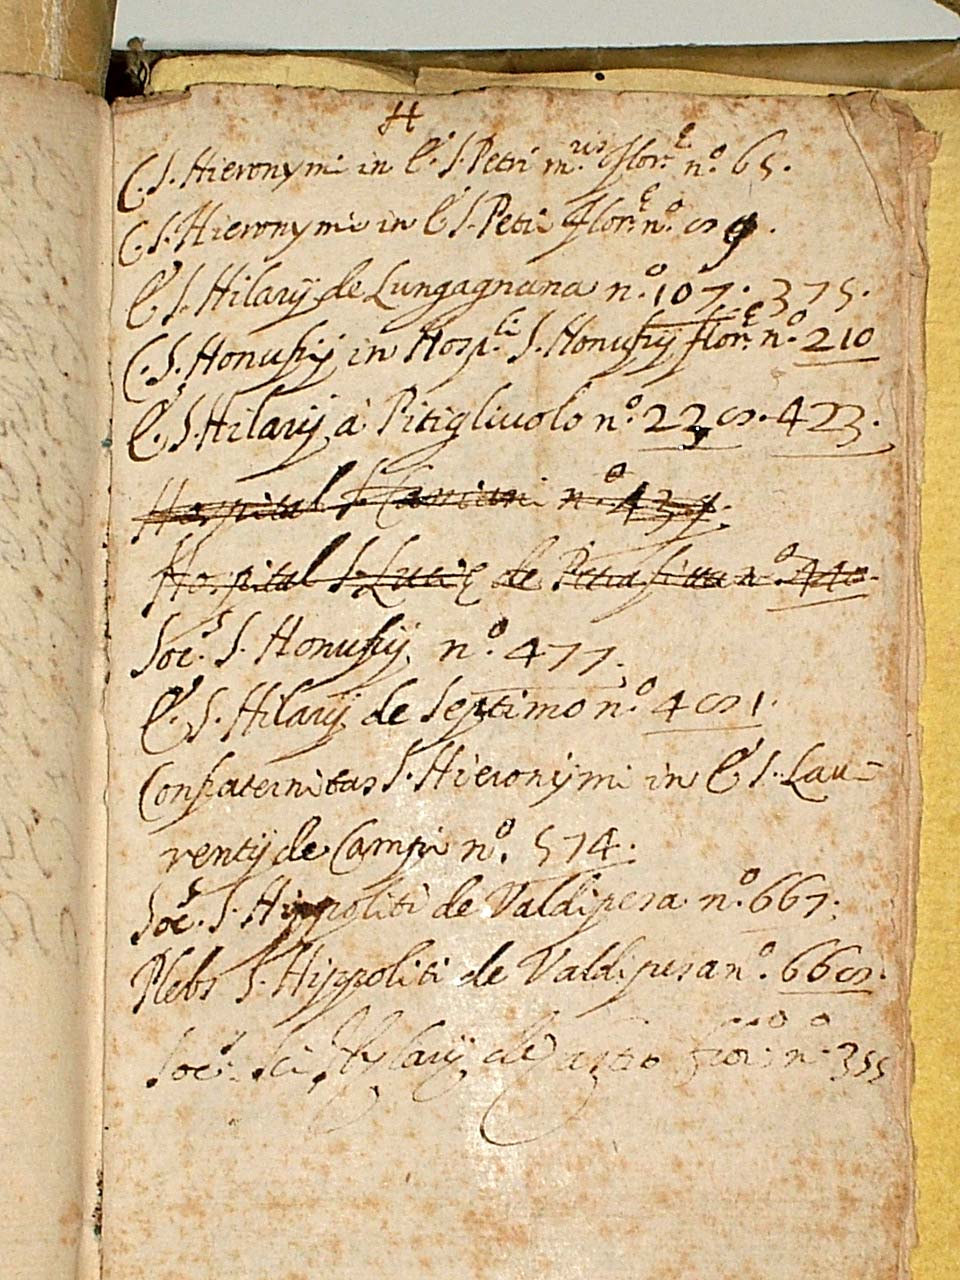 H
C. S. Hieronymi in E. S. Petri m.ris flor.e n.o 65.
C. S. Hieronymi in E. S. Petri flor.e n.o 89.
E. S. Hilarij de Lungagnana n.o 107. 375.
C. S. Honufrij in Hosp.li S. Honufrij flor.e n.o 210
E. S. Hilarij à Pitigliuolo n.o 228. 423.
Hospital S. n.o 439.
Hospital S. Lucię de n.o 440.
Soc.s S. Honufrij n.o 477.
E. S. Hilarij de Septimo n.o 481.
Confraternitas S. Hieronymi in E. S. Lau=
rentij de Campi n.o 574.
Soc.s S. Hippoliti de Valdipesa n.o 667.
Plebs S. Hippoliti de Valdipesa n.o 668.
Soc.s Sci Hylarij de n.o 355